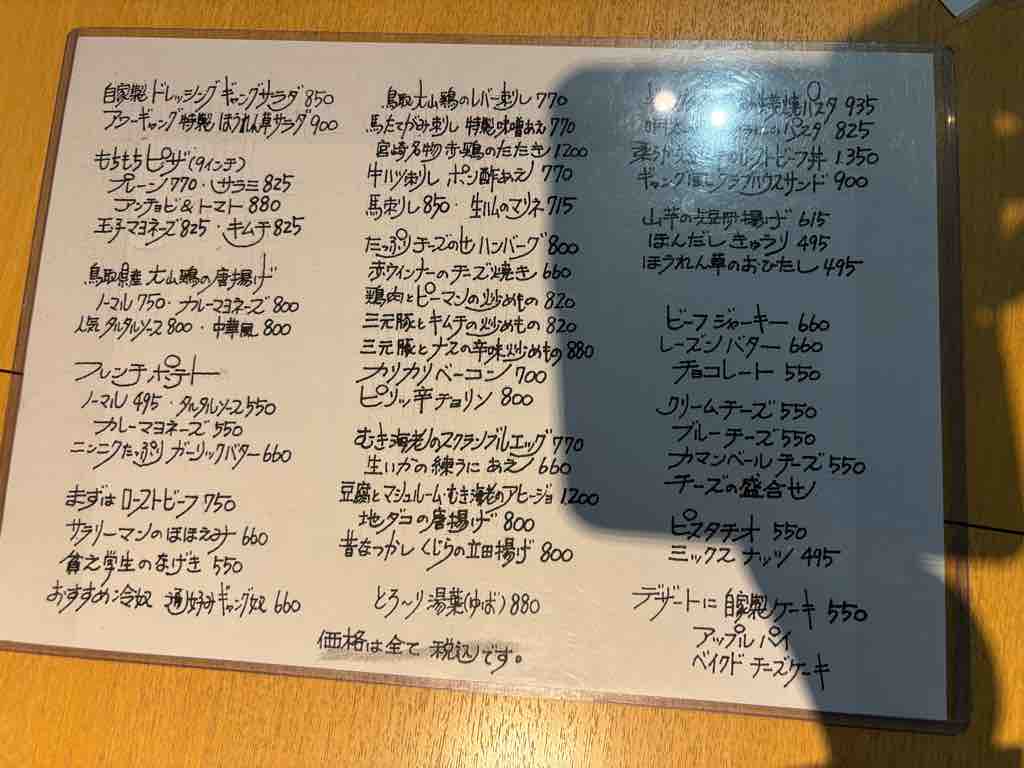 自家製ドレッシングギャングサラダ 850
アワーギャング特製 ほうれん草サラダ 900
もちもちピザ(9インチ)
プレーン770・サラミ825
アンチョビ&トマト 880
玉子マヨネーズ825・キムチ825
鳥取県産 大山鶏の唐揚げ
ノーマル 750・カレーマヨネーズ 800
人気 タルタルソース 800・中華風 800
フレンチポテト
ノーマル 495・タルタルソース550
カレーマヨネーズ 550
ニンニクたっぷり ガーリックバター 660
まずは ローストビーフ 750
サラリーマンのほほえみ 660
貧乏学生のなげき 550
おすすめ冷奴 通好みギャング奴 660
鳥取大山鶏のレバー刺し 770
馬たてがみ刺し 特製味噌あえ 770
宮崎名物 赤鶏のたたき 1200
牛ハツ刺し ポン酢あえ 770
馬刺し 850・生ハムのマリネ 715
たっぷりチーズのせハンバーグ 800
赤ウインナーのチーズ焼き 660
鶏肉とピーマンの炒めもの 820
三元豚とキムチの炒めもの 820
三元豚とナスの辛味炒めもの 880
カリカリベーコン 700
ピリッ辛チョリソ 800
むき海老のスクランブルエッグ 770
生いかの練うにあえ 660
豆腐とマシュルーム・むき海老のアヒージョ 1200
地ダコの唐揚げ 800
昔なつかし くじらの立田揚げ 800
とろ〜り湯葉(ゆば) 880
パスタ 935
パスタ 825
ローストビーフ丼 1350
ギャング クラブハウスサンド 900
山芋の短冊揚げ 615
ほんだしきゅうり 495
ほうれん草のおひたし 495
ビーフジャーキー 660
レーズンバター 660
チョコレート 550
クリームチーズ 550
ブルーチーズ 550
カマンベールチーズ 550
チーズの盛合せ
ピスタチオ 550
ミックスナッツ 495
デザートに 自家製ケーキ 550
アップルパイ
ベイクドチーズケーキ
価格は全て 税込です。